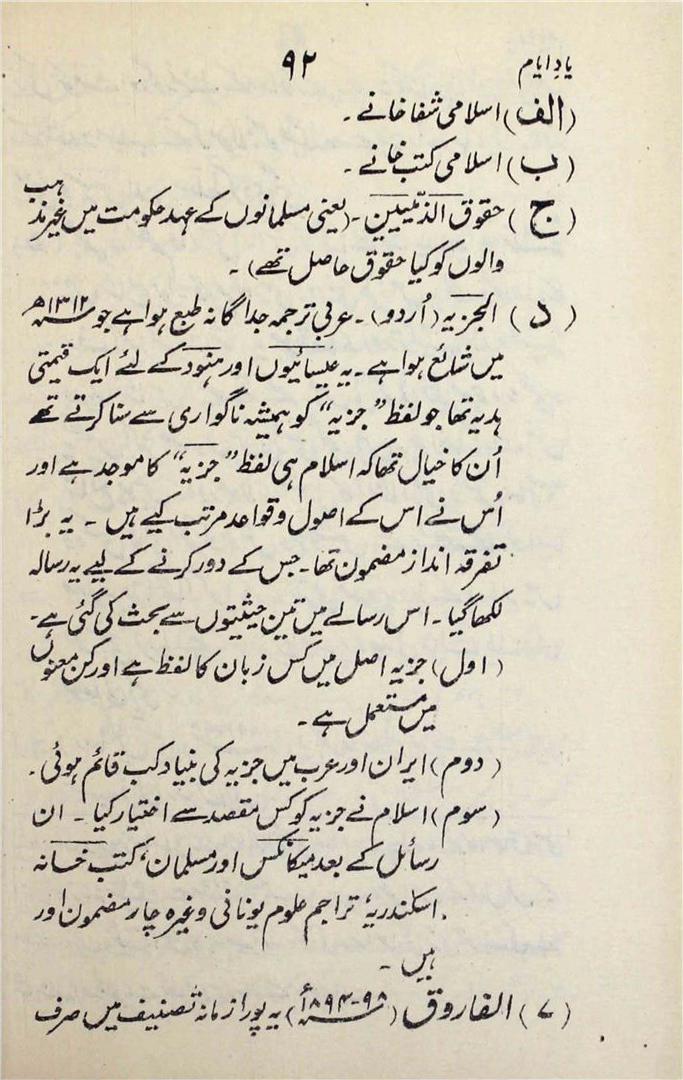 یادِ ایام ۹۲
(الف) اسلامی شفا خانے ۔
(ب) اسلامی کتب خانے ۔
(ج) حقوق الذمیین ۔ (یعنی مسلمانوں کے عہد حکومت میں غیر مذہب
والوں کو کیا حقوق حاصل تھے) ۔
(د) الجزیہ (اُردو) ۔ عربی ترجمہ جداگانہ طبع ہوا ہے جو سنہ ۱۳۱۲ھ
میں شائع ہوا ہے ۔ یہ عیسائیوں اور ہنود کے لئے ایک قیمتی
ہدیہ تھا جو لفظ "جزیہ" کو ہمیشہ ناگواری سے سنا کرتے تھے
اُن کا خیال تھا کہ اسلام ہی لفظ "جزیہ" کا موجد ہے اور
اُس نے اس کے اصول و قواعد مرتب کیے ہیں ۔ یہ بڑا
تفرقہ انداز مضمون تھا ۔ جس کے دور کرنے کے لیے یہ رسالہ
لکھا گیا ۔ اس رسالے میں تین حیثیتوں سے بحث کی گئی ہے ۔
(اول) جزیہ اصل میں کس زبان کا لفظ ہے اور کن معنوں
میں مستعمل ہے ۔
(دوم) ایران اور عرب میں جزیہ کی بنیاد کب قائم ہوئی ۔
(سوم) اسلام نے جزیہ کو کس مقصد سے اختیار کیا ۔ ان
رسائل کے بعد میکانکس اور مسلمان، کتب خانہ
اسکندریہ، تراجم علوم یونانی وغیرہ چار مضمون اور
ہیں ۔
(۷) الفاروق (سنہ ۹۵-۱۸۹۴ء) یہ پورا زمانہ تصنیف میں صرف